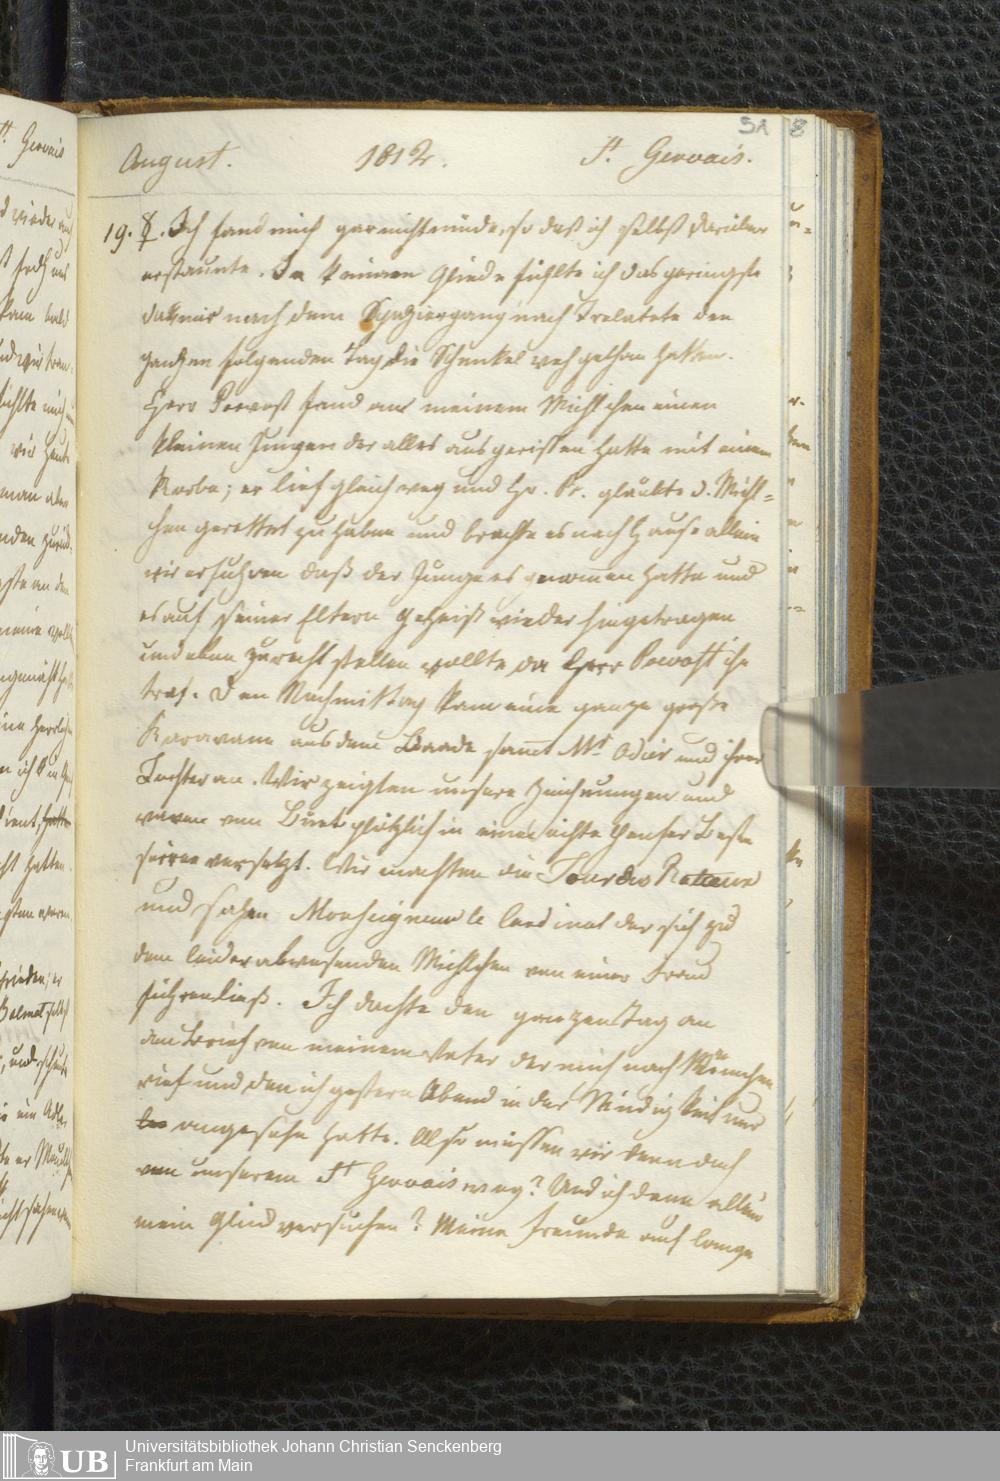 August. 1812. St Gervais.
51 8
19. ☿. Ich fand mich gar nicht müde, so daß ich selbst darüber
erstaunte. In keinem Gliede fühlte ich das geringste
da mir nach dem Spaziergang nach Trelatete den
ganzen folgenden Tag die Schenkel weh gethan hatten.
Herr Prevost fand an meinem Mühlchen einen
kleinen Jungen der alles ausgerissen hatte mit einem
Korbe; er lief gleich weg und Hr. Pr. glaubte d. Mühl=
chen gerettet zu haben und brachte es nach Hause allein
wir erfuhren daß der Junge es genommen hatte und
es auf seiner Eltern Geheiß wieder hingetragen
und eben zurecht stellen wollte da Herr Prevost ihn
traf. Den Nachmittag kam eine ganze große
Karavane aus dem Baade samt Me Odier und ihrer
Tochter an. Wir zeigten unsere Zeichnungen und
waren von Buet plötzlich in eine ächte Genfer
versetzt. Wir machten die Tour des Rateaux
und sahen Monseigneur le Cardinal der sich zu
dem leider abwesenden Mühlchen von einer
führen ließ. Ich dachte den ganzen Tag an
den Brief von meinem Vater der mich nach München
rief und den ich gestern Abend in der Müdigkeit nur
angesehn hatte. Also müssen wir denn doch
von unserem St Gervais weg? Und ich denn allein
mein Glück versuchen? Meine Freunde auf lange
UB
Universitätsbibliothek Johann Christian Senckenberg
Frankfurt am Main